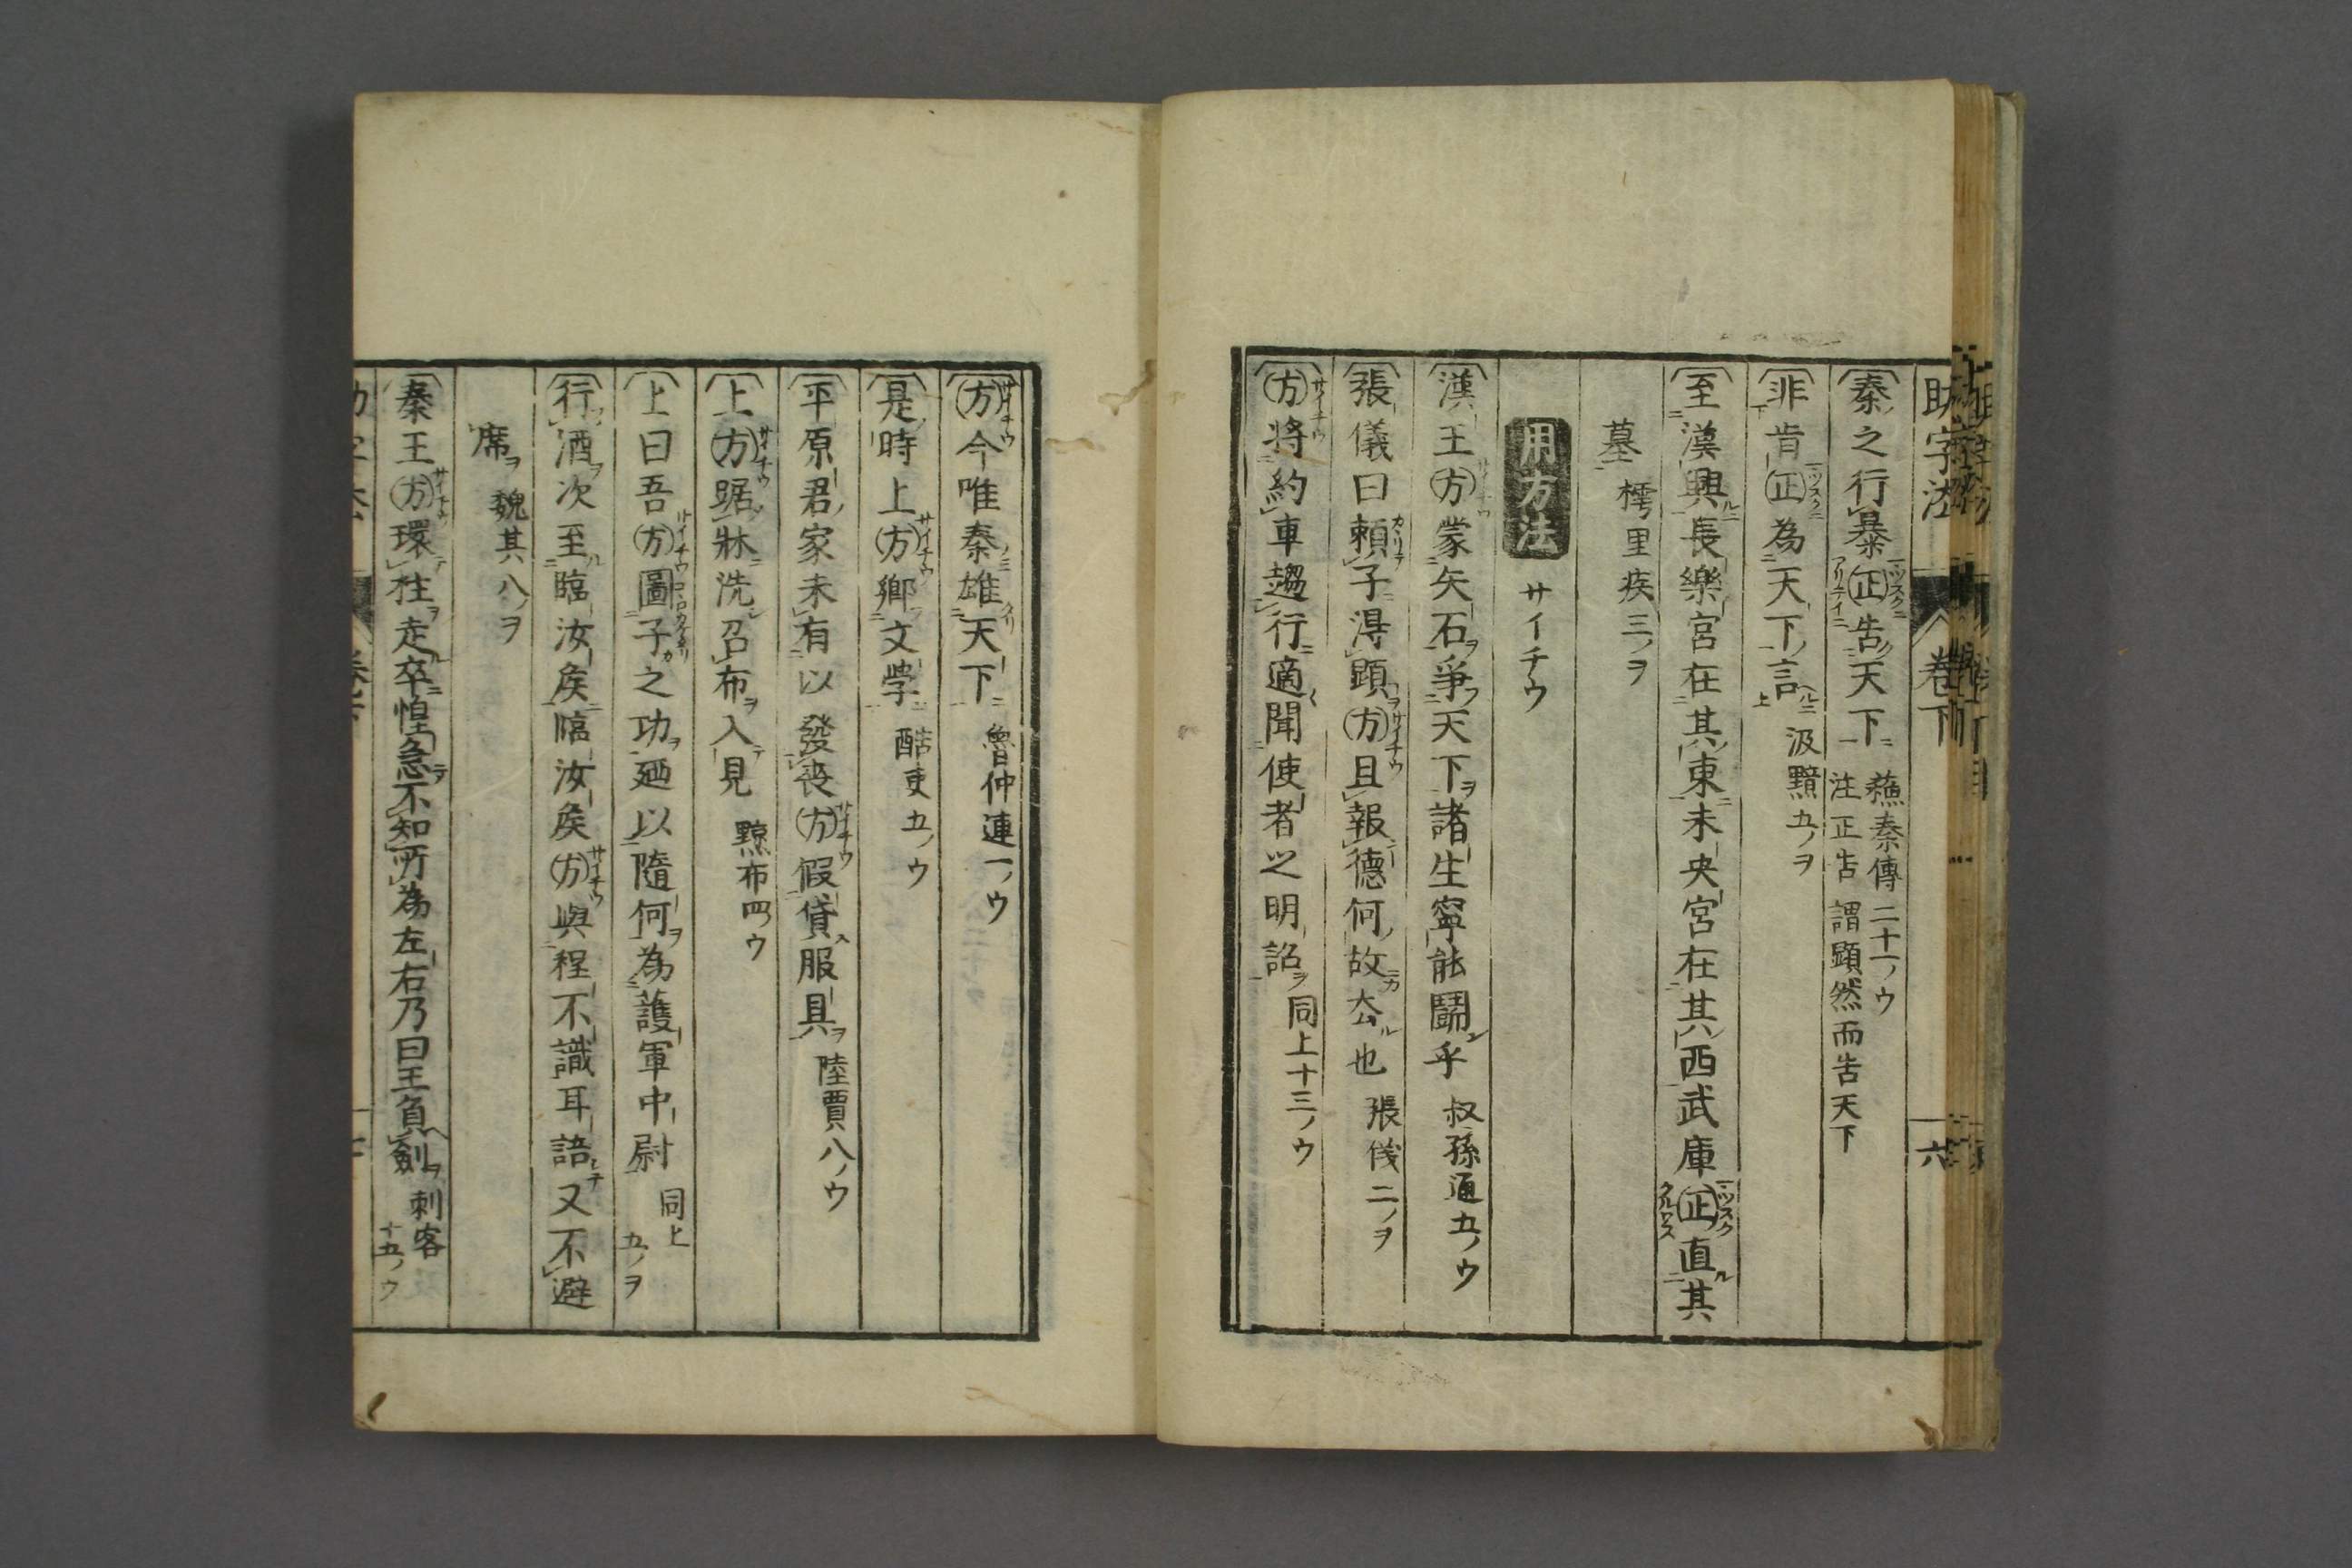 助字法 卷下 六
秦之行暴正告天下 蘓秦傳二十一ノウ 注正告謂顕然而告天下
非肯正為天下言 汲黯五ノヲ
至漢興長樂宮在其東未央宮在其西武庫正直其
墓 樗里疾三ノヲ
用方法 サイチウ
漢王方蒙矢石爭天下諸生寧能鬪乎 叔孫通五ノウ
張儀曰頼子得顕方且報德何故厺也 張儀二ノヲ
方將約車趨行適聞使者之明詔 同上十三ノウ
方今唯秦雄天下 魯仲連一ノウ
是時上方鄉文斈 酷吏五ノウ
平原君家未有以發喪方假貸服具 陸賈八ノウ
上方踞牀洗召布入見 黥布四ノウ
上曰吾方圖子之功廼以隨何為護軍中尉 同上五ノヲ
行酒次至臨汝矦臨汝矦方與程不識耳語又不避
席 魏其八ノヲ
秦王方環柱走卒惶急不知所為左右乃曰王負劍 刺客十五ノウ